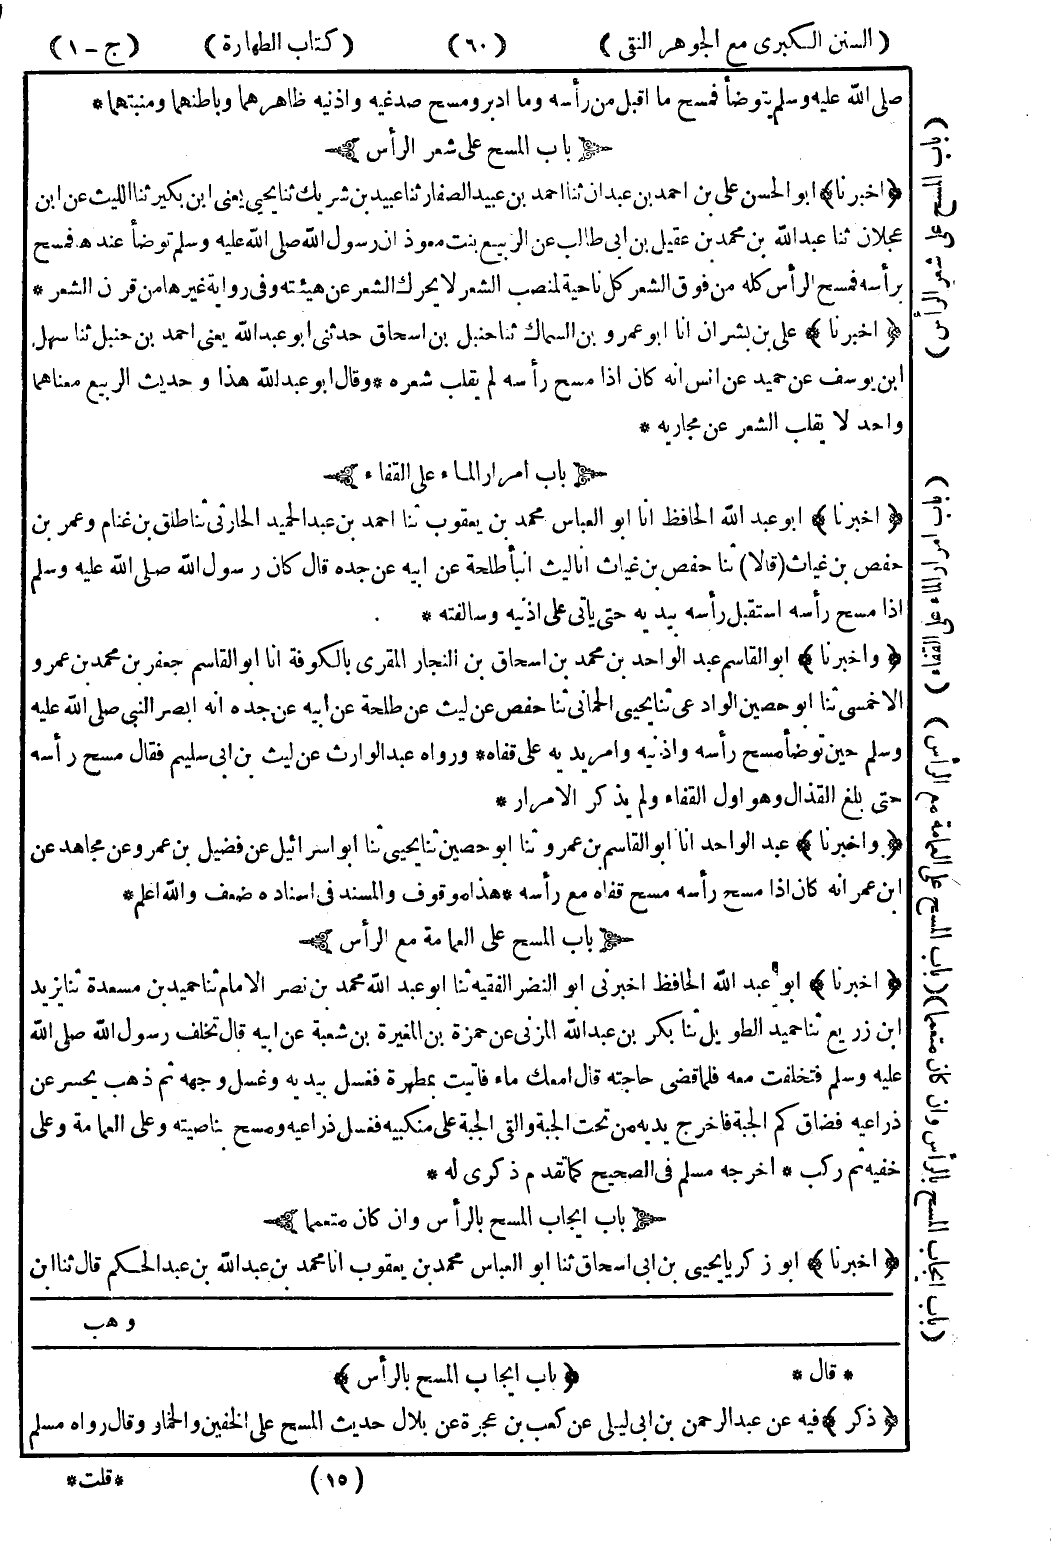 (السنن الكبرى مع الجوهر النقى) (٦٠) (كتاب الطهارة) (ج - ١)
صلى الله عليه وسلم يتوضأ فمسح ما اقبل من رأسه وما ادبر ومسح صدغيه واذنيه ظاهرهما وباطنهما ومنبتهما *
باب المسح على شعر الرأس
﴿اخبرنا﴾ ابو الحسن على بن احمد بن عبدان ثنا احمد بن عبيد الصفار ثنا عبيد بن شريك ثنا يحيى يعنى ابن بكير ثنا الليث عن ابن
عجلان ثنا عبدالله بن محمد بن عقيل بن ابى طالب عن الربيع بنت معوذ ان رسول الله صلى الله عليه وسلم توضأ عندها فمسح
برأسه فمسح الرأس كله من فوق الشعر كل ناحية لمنصب الشعر لا يحرك الشعر عن هيئته وفى رواية غيرها من قرن الشعر *
﴿اخبرنا﴾ على بن بشران انا ابو عمرو بن السماك ثنا حنبل بن اسحاق حدثنى ابو عبدالله يعنى احمد بن حنبل ثنا سهل
ابن يوسف عن حميد عن انس انه كان اذا مسح رأسه لم يقلب شعره * وقال ابو عبدالله هذا و حديث الربيع معناهما
واحد لا يقلب الشعر عن مجاريه *
باب امرار الماء على القفاء
﴿اخبرنا﴾ ابو عبد الله الحافظ انا ابو العباس محمد بن يعقوب ثنا احمد بن عبدالحميد الحارثى ثنا طلق بن غنام وعمر بن
حفص بن غياث (قالا) ثنا حفص بن غياث انا ليث انبأ طلحة عن ابيه عن جده قال كان رسول الله صلى الله عليه وسلم
اذا مسح رأسه استقبل رأسه بيديه حتى يأتى على اذنيه وسالفته *
﴿واخبرنا﴾ ابو القاسم عبد الواحد بن محمد بن اسحاق بن النجار المقرى بالكوفة انا ابو القاسم جعفر بن محمد بن عمرو
الاخمسى ثنا ابو حصين الوادعى ثنا يحيى الحمانى ثنا حفص عن ليث عن طلحة عن أبيه عن جده انه ابصر النبى صلى الله عليه
وسلم حين توضأ مسح رأسه واذنيه وامر يديه على قفاه * ورواه عبدالوارث عن ليث بن ابى سليم فقال مسح رأسه
حتى بلغ القذال وهو اول القفاء ولم يذكر الامرار *
﴿واخبرنا﴾ عبد الواحد انا ابو القاسم بن عمرو ثنا ابو حصين ثنا يحيى ثنا ابو اسرائيل عن فضيل بن عمرو عن مجاهد عن
ابن عمر انه كان اذا مسح رأسه مسح قفاه مع رأسه * هذا موقوف والمسند فى اسناده ضعف والله اعلم *
باب المسح على العمامة مع الرأس
﴿اخبرنا﴾ ابو عبد الله الحافظ اخبرنى ابو النضر الفقيه ثنا ابو عبد الله محمد بن نصر الامام ثنا حميد بن مسعدة ثنا يزيد
ابن زريع ثنا حميد الطويل ثنا بكر بن عبدالله المزنى عن حمزة بن المغيرة بن شعبة عن ابيه قال تخلف رسول الله صلى الله
عليه وسلم فتخلفت معه فلما قضى حاجته قال امعك ماء فأتيت بمطهرة فغسل بيديه وغسل وجهه ثم ذهب يحسر عن
ذراعيه فضاق كم الجبة فاخرج يديه من تحت الجبة والقى الجبة على منكبيه فغسل ذراعيه ومسح بناصيته وعلى العمامة وعلى
خفيه ثم ركب * اخرجه مسلم فى الصحيح كما تقدم ذكرى له *
باب ايجاب المسح بالرأس وان كان متعمما
﴿اخبرنا﴾ ابو زكريا يحيى بن ابى اسحاق ثنا ابو العباس محمد بن يعقوب انا محمد بن عبدالله بن عبدالحكم قال ثنا ابن
وهب
* قال * ﴿باب ايجاب المسح بالرأس﴾
﴿ذكر﴾ فيه عن عبدالرحمن بن ابى ليلى عن كعب بن عجرة عن بلال حديث المسح على الخفين والخمار وقال رواه مسلم
(١٥) * قلت *
(باب المسح على شعر الرأس)
(باب امرار الماء على القفاء)
(باب المسح على العمامة مع الرأس)
(باب ايجاب المسح بالرأس وان كان متعمما)